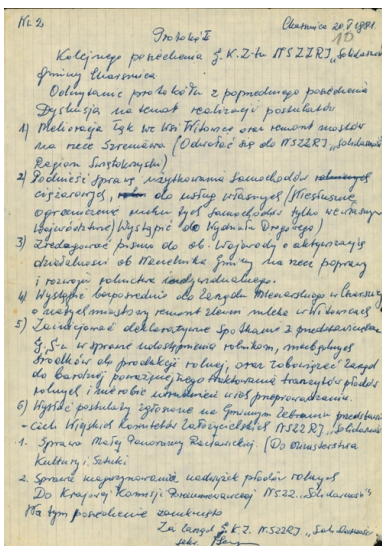 Nr. 2 Charsznica 20.V 1981.
10
Protokół
Kolejnego posiedzenia G.K.Z-tu NSZZRJ „Solidarność"
Gminy Charsznica
Odczytanie protokółu z poprzedniego posiedzenia
Dyskusja na temat realizacji postulatów
1) Melioracja łąk we Wsi Witowice oraz remont mostów
na rzece Szreniawa (Odwołać się do NSZZRJ „Solidarność
Region Świętokrzyski)
2) Podnieść sprawę użytkowania samochodów
ciężarowych, do usług własnych (Niesłuszne
ograniczenie ruchu tych samochodów tylko we własnym
Województwie) Wystąpić do Wydziału Drogowego)
3) Zredagować pismo do ob. Wojewody o aktywizację
działalności ob Naczelnika Gminy na rzecz poprawy
i rozwoju rolnictwa indywidualnego.
4) Wystąpić bezpośrednio do Zarządu Mleczarskiego w Charsznicy
o natychmiastowy remont zlewni mleka w Witowicach
5) Zainicjować Spotkanie z przedstawicielami
G.S-u w sprawie udostępnienia rolnikom, niezbędnych
środków do produkcji rolnej, oraz zobowiązać Zarząd
do bardziej poważnego traktowania płodów
rolnych i nie robić
6) Wysłać postulaty zgłoszone na Gminnym Zebraniu przedstawi-
cieli Wiejskich Komitetów Założycielskich NSZZRJ „Solidarność"
1. Sprawa Małej Panoramy Racławickiej. (Do Ministerstwa
Kultury i Sztuki
2. Sprawa magazynowania nadwyżek płodów rolnych
Do Krajowej Komisji Porozumiewawczej NSZZ „Solidarność"
Na tym posiedzenie zamknięto
Za Zarząd G.K.Z. NSZZRJ „Solidarność
sekr.